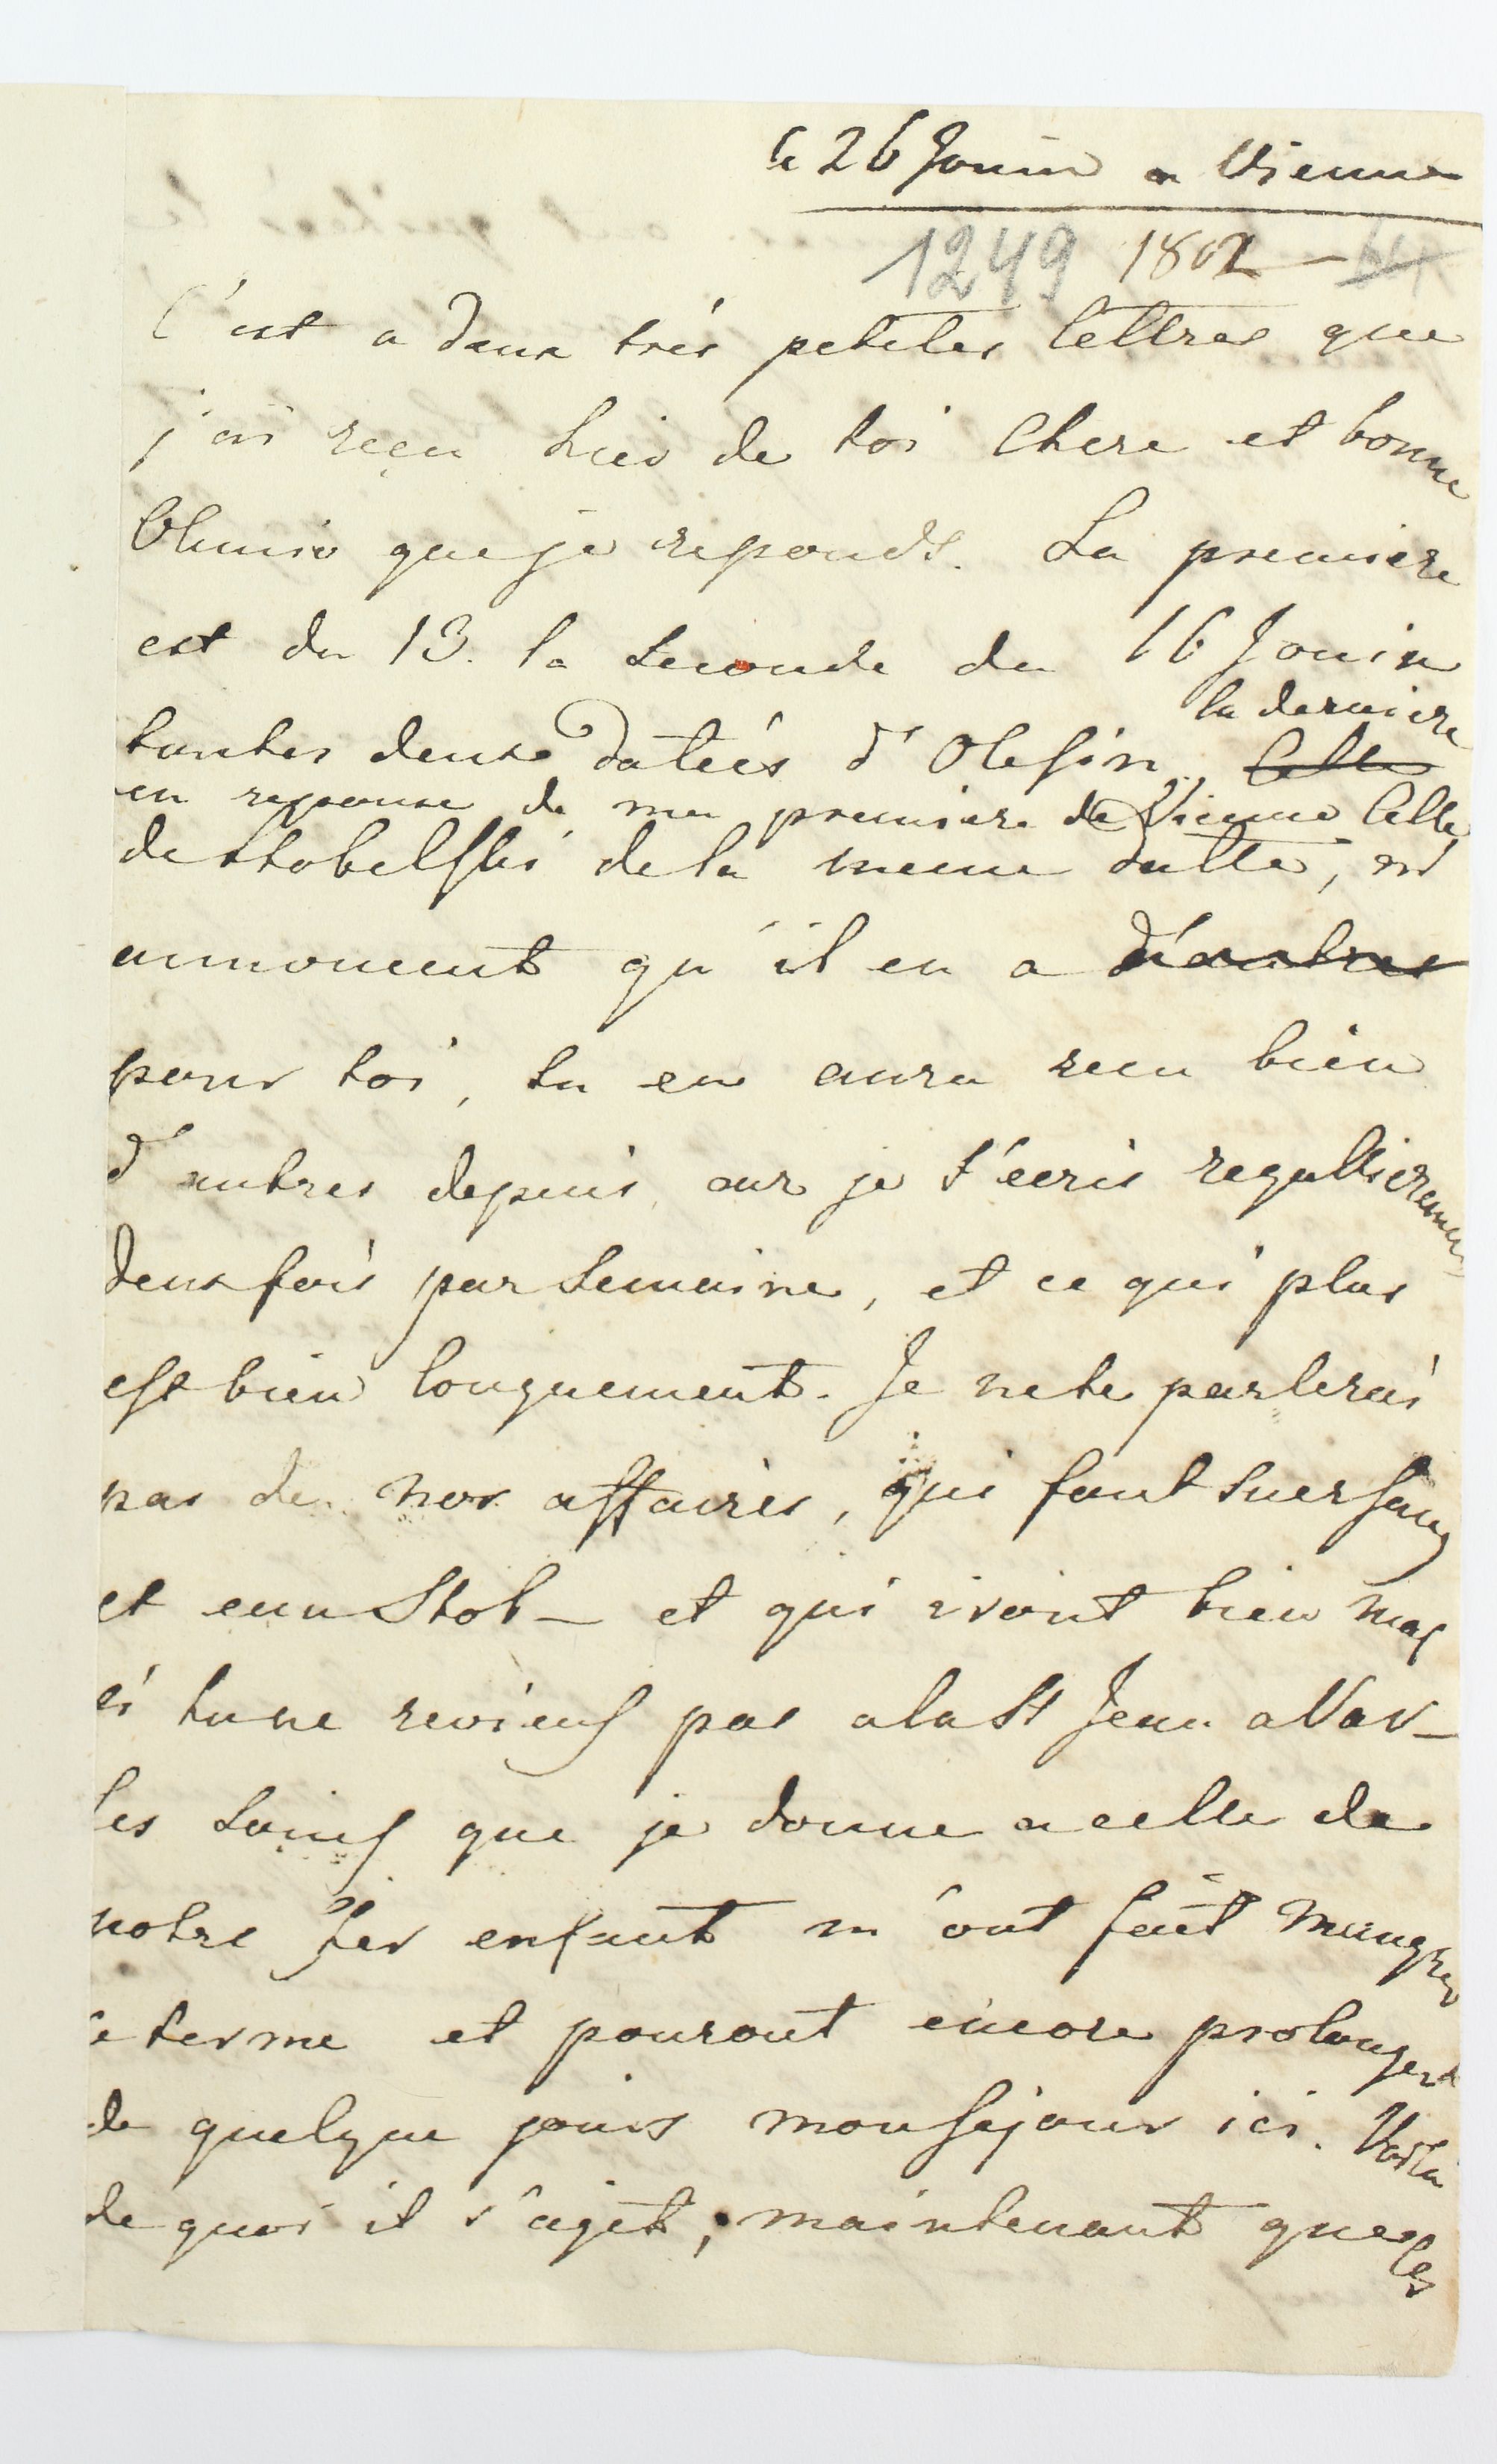 le 26 Jouin a Vienne
1249 1802 —
C'est a deux très petites lettres que
j'ai reçu hier de toi Chere et bonne
que je reponds. La premiere
est du 13. la seconde du 16 Jouin
la derniere
toutes deux datées d'Olesin, Celle
en reponse de ma premiere de Vienne Celle
de Stobelski de la meme datte, m'
annoncent qu'il en a d'autres
pour toi, tu en aura recu bien
d'autres depuis, car je t'ecris regullierement
deux fois par Semaine, et ce qui plus
est bien longuement. Je ne te parlerai
pas de nos affaires, qui font suer sang
et eau Stob— et qui iront bien mal
si tu ne reviens pas a la St Jean a Var—
les soins que je donne a celle de
notre cher enfant m'ont fait manquer
ce terme et pouront encore prolonger
de quelque jours mon sejour ici. Voila
de quoi il s'agit; maintenant que les